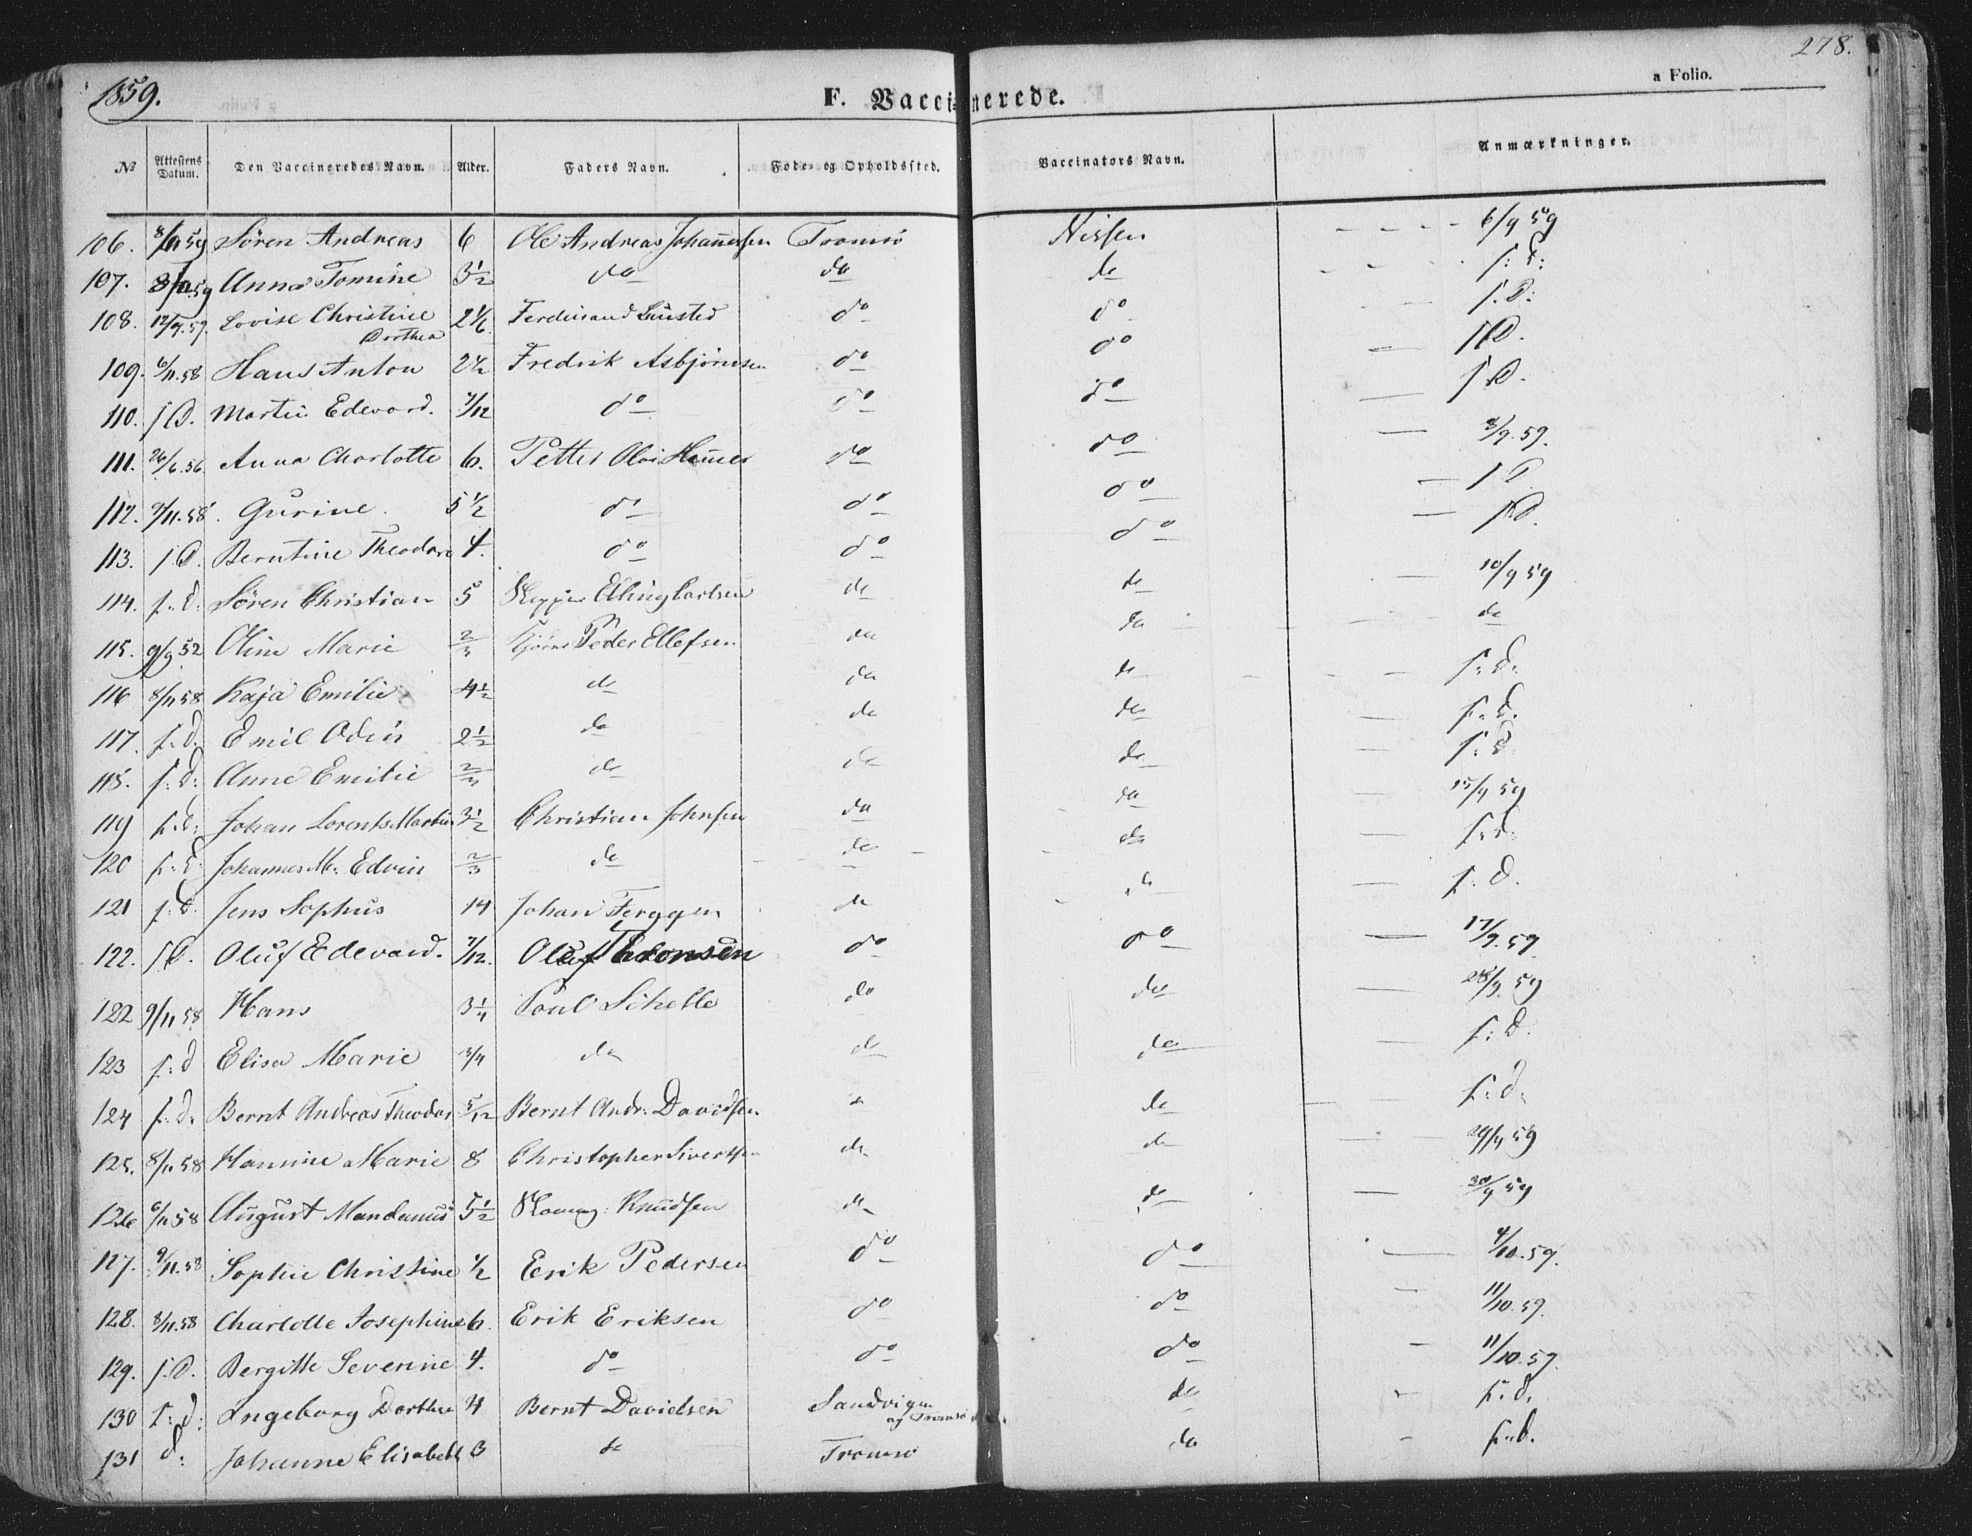 278.
a Folio.
1859.
F. Vaccinerede.
№ Attestens Datum. Den Vaccineredes Navn. Alder. Faders Navn. Føde- og Opholdssted. Vaccinators Navn. Anmærkninger.
106. Sören Andreas 6 Ole Andreas Johannessen Tromsö Nissen 6/9 59
107. Anna Tomine 3 1/2 do do do s: d:
108. 12/9.59. Lovise Christine Dorthea 2 1/6 Ferdinand do do s. d:
109. 6/11.58 Hans Anton 2 1/2 Fredrik Asbjörnsen do do s d.
110. s d. Martin Edevard. 7/12 do do do s d.
111. 26/6.56 Anna Charlotte 6. Petter do do 8/9.59.
112. 9/11.58. Gurine. 5 1/2 do do do s d.
113. s d. Berntine Theodore 4. do do do s d.
114. s. d. Sören Christian 5 Skipper Elling Carlsen do do 10/9 59
115. 9/9 52 Oline Marie 2/3 Peder Ellefsen do do do
116 8/11 58 Kaja Emilie 4 1/2 do do do s: d:
117. s: d. Emil Odin 2 1/2 do do do s. d.
118. s: d: Anne Emilie 2/3 do do do s: d
119 s. d: Johan Lorents Martin 3 1/2 Christian Johnsen do do 15/9 59
120 s: d Johannes M. Edvin 2/3 do do do s. d.
121 s: d. Jens Sophus 14 Johan Ferggen do do s: d.
122. s d. Oluf Edevard. 7/12. Oluf do do 17/9.59.
122 9/11 58 Hans 3 1/4 Poul Schelle do do 28/9. 59
123 s: d Elisa Marie 3/4 do do do s: d.
124 s: d. Bernt Andreas Theodor 5/12 Bernt Andr: Davidsen do do s: d.
125. 8/11 58 Hannine Marie 8 Christopher Sivertsen do do 29/9 59
126 6/11 58 August Mandanus 5 1/2 Knudsen do do 30/9 59
127. 9/11.58 Sophie Christine 1/2 Eerik Pedersen do do 4/10.59.
128. 8/11.58 Charlotte Josephine 6. Erik Eriksen do do 11/10.59.
129. s. d. Bergitte Severine 4. do do do 11/10.59.
130 s: d: Ingeborg Dorthea 4 Bernt Davidsen Sandvigen og Tromsö do s: d.
131 d: Johanne Elisabeth 3 do Tromsö do s. d.